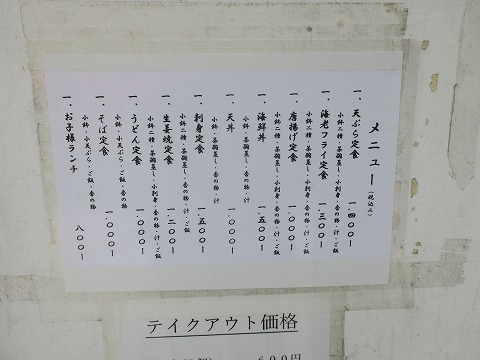 メニュー（税込み）
一、天ぷら定食 一、四〇〇ー
小鉢二種・茶碗蒸し・小刺身・香の物・汁・ご飯
一、海老フライ定食 一、三〇〇ー
小鉢二種・茶碗蒸し・小刺身・香の物・汁・ご飯
一、唐揚げ定食 一、〇〇〇ー
小鉢二種・茶碗蒸し・小刺身・香の物・汁・ご飯
一、海鮮丼 一、五〇〇ー
小鉢・茶碗蒸し・香の物・汁
一、天丼 一、〇〇〇ー
小鉢・茶碗蒸し・香の物・汁
一、刺身定食 一、五〇〇ー
小鉢二種・茶碗蒸し・香の物・汁・ご飯
一、生姜焼定食 一、二〇〇ー
小鉢二種・茶碗蒸し・小刺身・香の物・汁・ご飯
一、うどん定食 一、〇〇〇ー
小鉢・小天ぷら・ご飯・香の物
一、そば定食 一、〇〇〇ー
小鉢・小天ぷら・ご飯・香の物
一、お子様ランチ 八〇〇ー
テイクアウト価格
600円